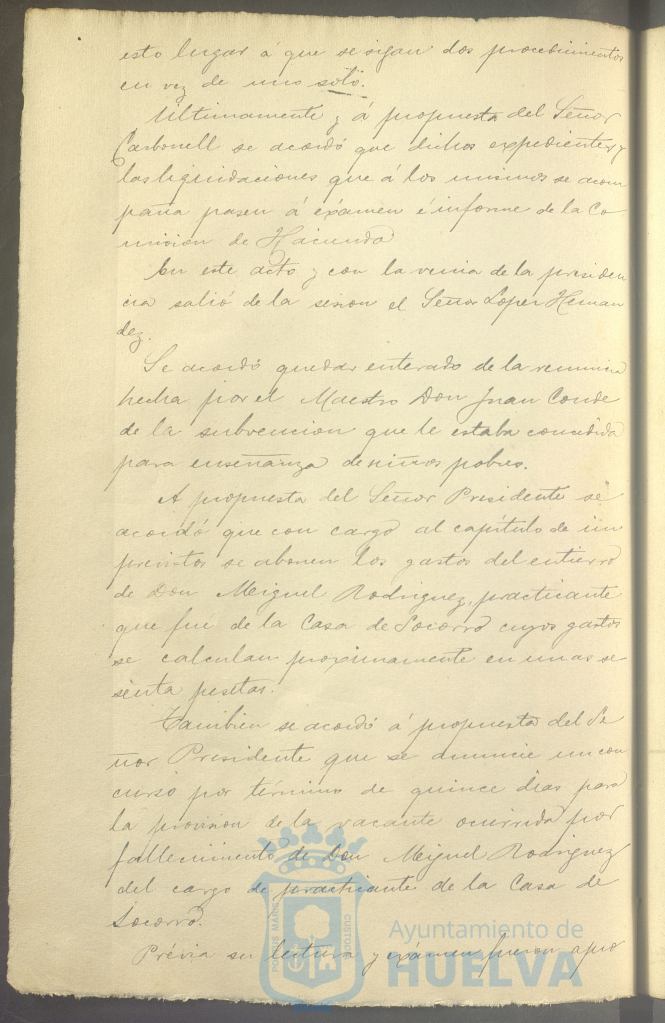 esto lugar á que se sigan dos procedimientos
en vez de uno solo.
Ultimamente y á propuesta del Señor
Carbonell se acordó que dichos expedientes y
las liquidaciones que á los mismos se acom
paña pasen á exámen é informe de la Co
mision de Hacienda
En este acto y con la venia de la presiden
cia salió de la sesion el Señor Lopez Hernan
dez.
Se acordó quedar enterado de la renuncia
hecha por el Maestro Don Juan Conde
de la subvencion que le estaba concedida
para enseñanza de niños pobres.
A propuesta del Señor Presidente se
acordó que con cargo al capítulo de im
previstos se abonen los gastos del entierro
de Don Miguel Rodriguez, practicante
que fué de la Casa de Socorro cuyos gastos
se calculan proximamente en unas se
senta pesetas.
Tambien se acordó á propuesta del Se
ñor Presidente que se anuncie un con
curso por término de quince dias para
la provision de la vacante ocurrida por
fallecimiento de Don Miguel Rodriguez
del cargo de practicante de la Casa de
Socorro.
Prévia su lectura y exámen fueron apro
PORTUS MARIS
CUSTODIA
Ayuntamiento de
HUELVA